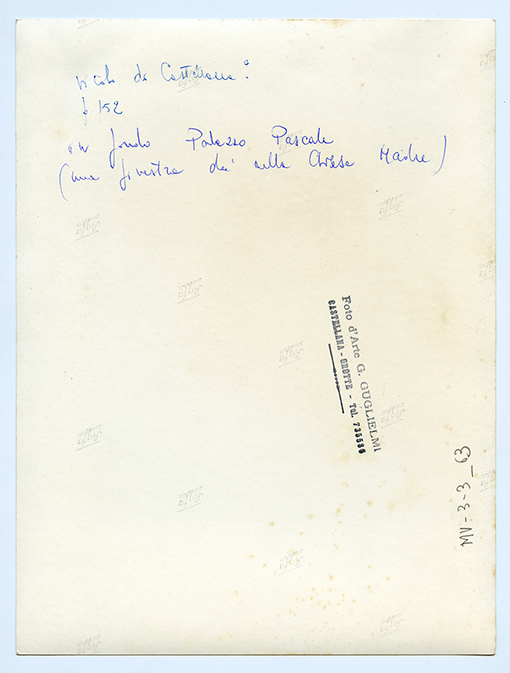 da Castellana
f 152
in fondo Palazzo Pascale
(una finestra dà sulla Chiesa Madre)
Foto d'Arte G. GUGLIELMI
CASTELLANA - GROTTE - Tel. 735585
MV-3-3_63
Agfa